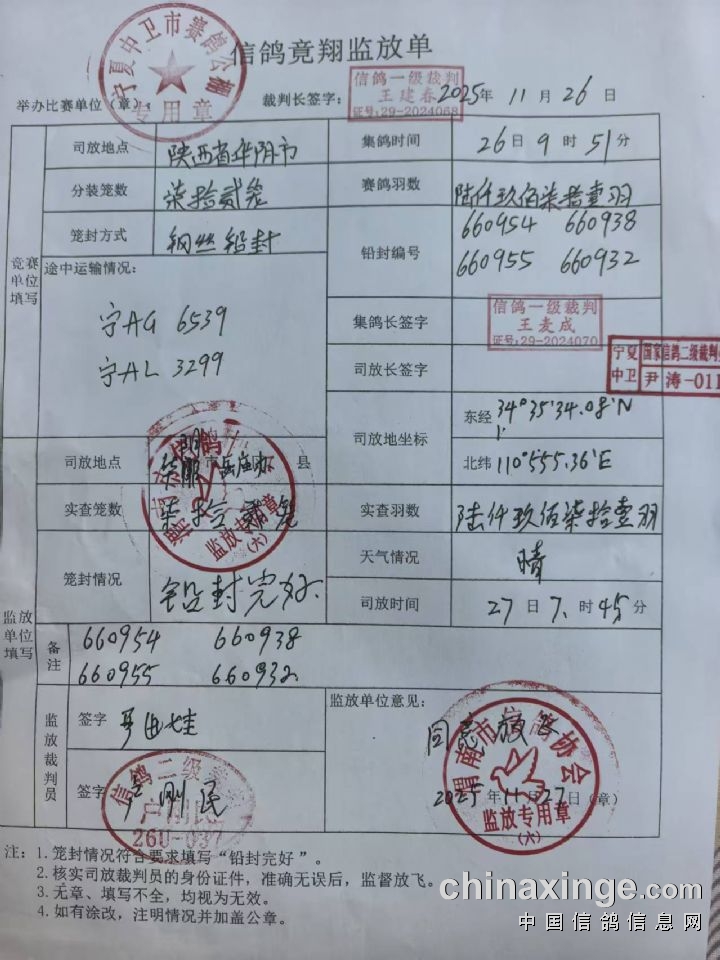 信鸽竞翔监放单
宁夏中卫市赛鸽公棚
专用章
举办比赛单位（章）：
裁判长签字：
信鸽一级裁判
王建春
证号:29-2024068
2025年 11月 26日
竞赛单位填写
司放地点 陕西省华阴市
集鸽时间 26日 9时 51分
分装笼数 柒拾贰笼
赛鸽羽数 陆仟玖佰柒拾壹羽
笼封方式 钢丝铅封
铅封编号
660954 660938
660955 660932
途中运输情况：
宁AG 6539
宁AL 3299
集鸽长签字
信鸽一级裁判
王麦成
证号:29-2024070
司放长签字
宁夏 国家信鸽二级裁判
中卫 尹涛-011
司放地坐标
东经 34°35'34.08'N
北纬 110°555.36'E
监放单位填写
司放地点 市 县
实查笼数 柒拾贰笼
监放专用章
(六)
实查羽数 陆仟玖佰柒拾壹羽
笼封情况 铅封完好.
天气情况 晴
司放时间 27日 7时 45分
备注
660954 660938
660955 660932
监放裁判员
签字
签字
信鸽二级裁判
260-037
监放单位意见：
同意放飞
渭南市信鸽协会
监放专用章
(六)
2025年 11月 27日（章）
注：1. 笼封情况符合要求填写“铅封完好”。
2. 核实司放裁判员的身份证件，准确无误后，监督放飞。
3. 无章、填写不全，均视为无效。
4. 如有涂改，注明情况并加盖公章。
chinaxinge.com
中国信鸽信息网